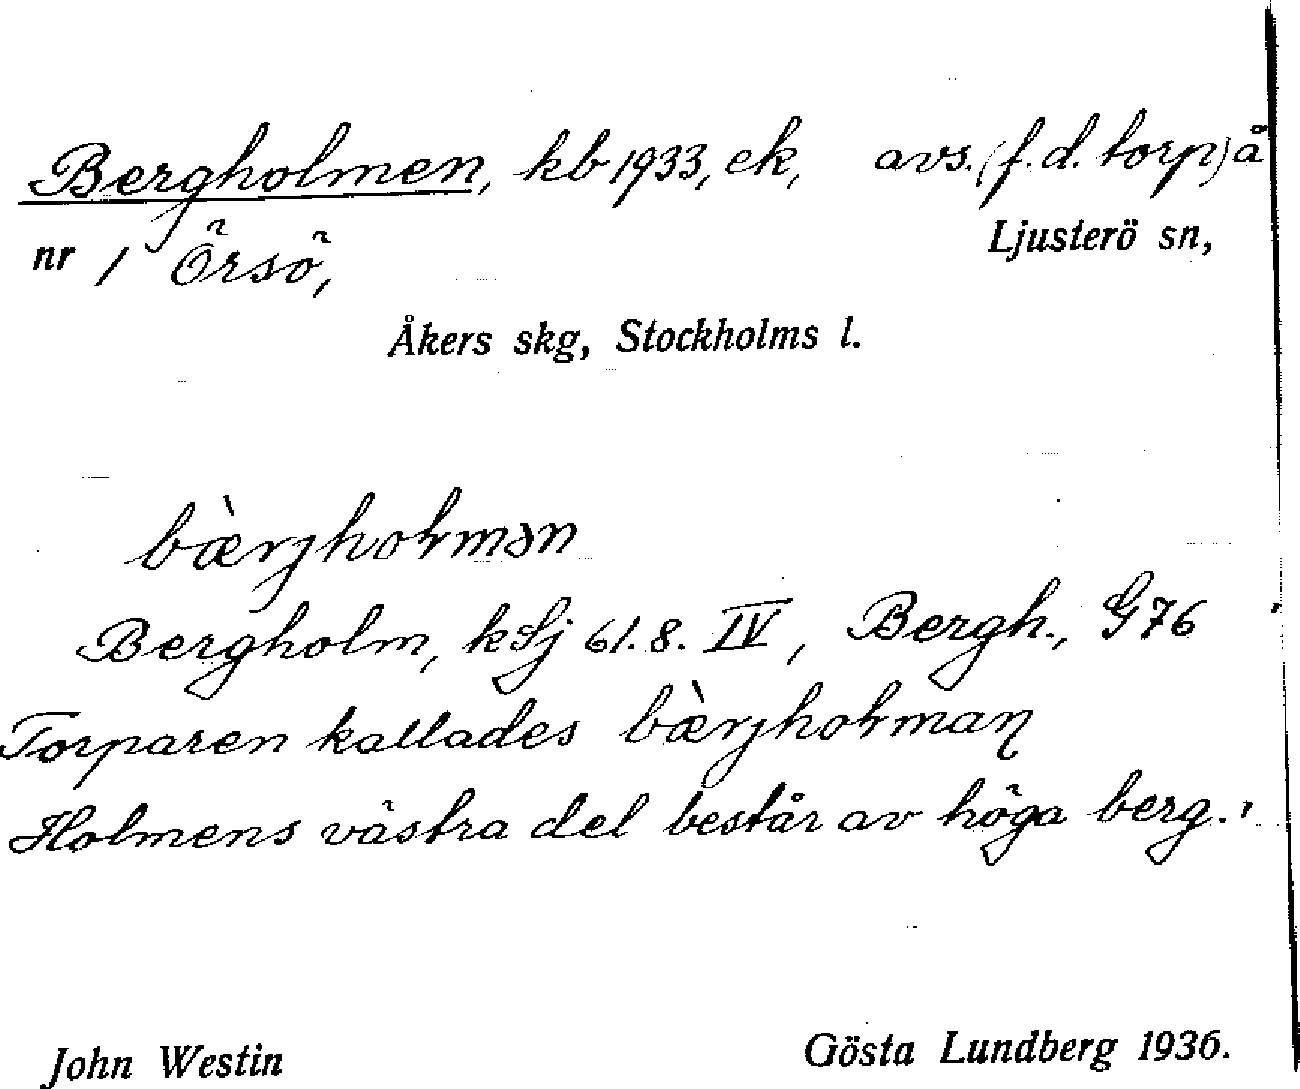 Bergholmen, kb 1933, ek, avs. (f.d. torp) å
nr 1 Örsö, Ljusterö sn,
Åkers skg, Stockholms l.
bæ̀rjhoɫmən
Bergholm, kSj 61.8. IV, Bergh., G 76
Torparen kallades bæ̀rjhoɫman
Holmens västra del består av höga berg.
John Westin Gösta Lundberg 1936.